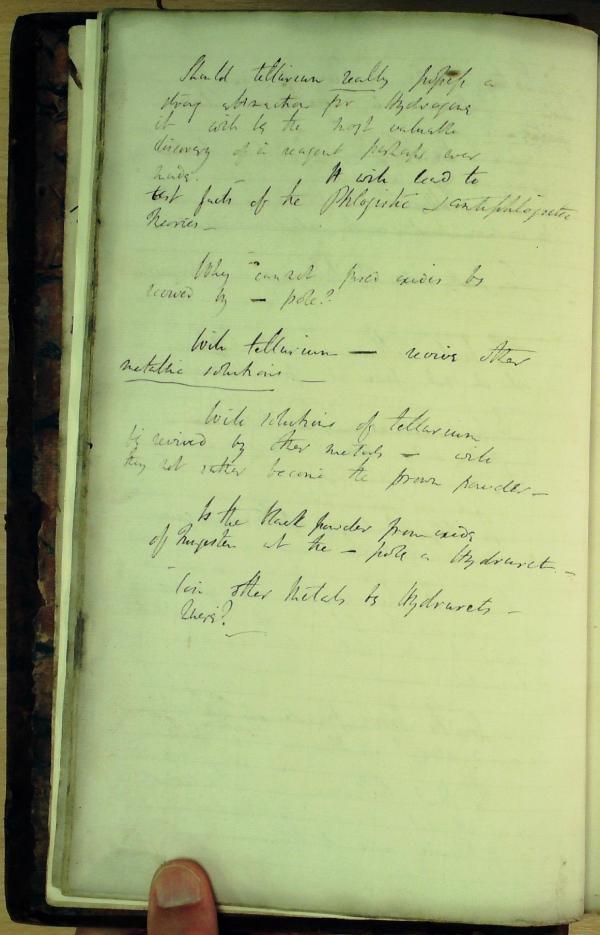 Should tellurium really possess a
strong attraction for Hydrogene
it will be the most valuable
discovery of a reagent perhaps ever
made. - It will lead to
test facts of the Phlogistic & antiphlogistic
Theories -
Why cannot fused oxides be
revived by - pole?
Will tellurium - revive other
metallic solutions -
Will solutions of tellurium
be revived by other metals - will
they not rather become the brown powder -
Is the black powder from oxide
of Tungsten at the - pole a Hydruret -
Can other Metals be Hydrurets -
there?